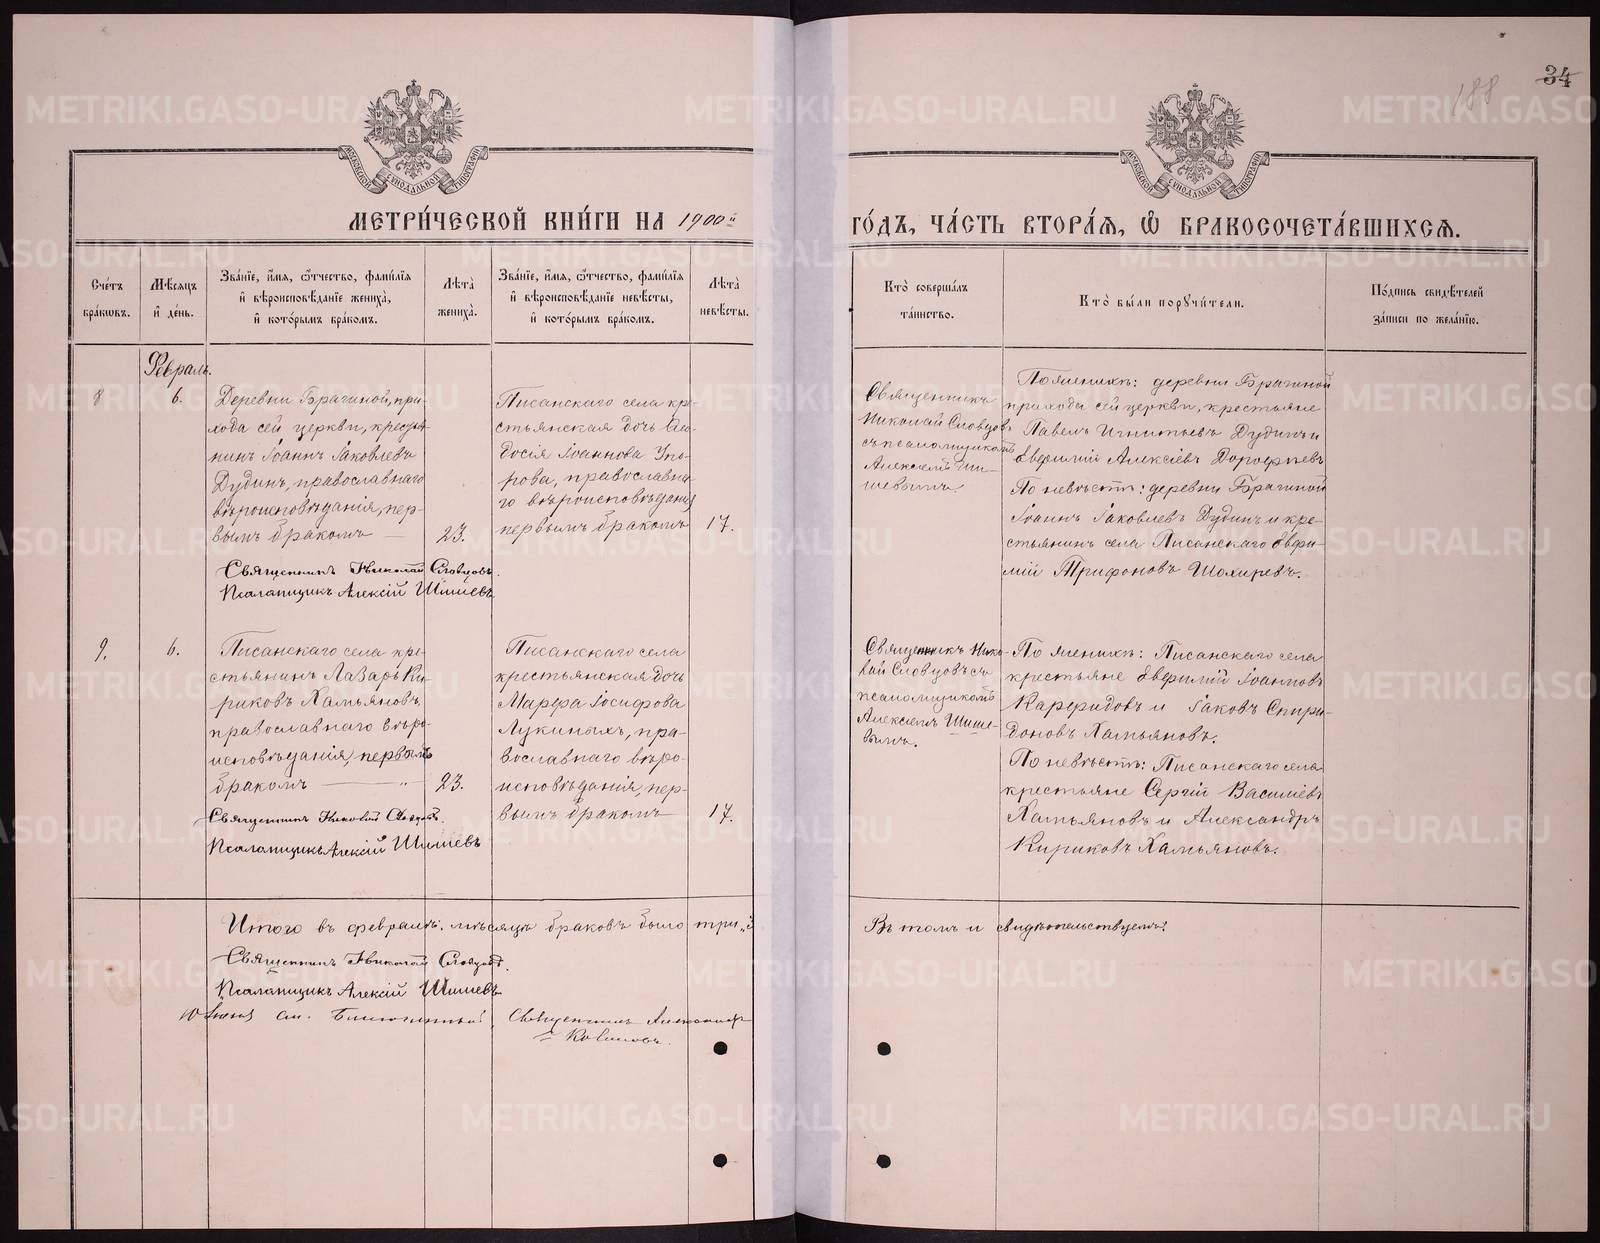 34
188
МОСКОВСКОЙ СѴНОДАЛЬНОЙ ТИПОГРАФІИ
МОСКОВСКОЙ СѴНОДАЛЬНОЙ ТИПОГРАФІИ
МЕТРИ́ЧЕСКОЙ КНИ́ГИ НА 1900й
ГО́ДЪ, ЧА́СТЬ ВТОРА́Я, Ѡ҆ БРАКОСОЧЕТА́ВШИХСЯ.
Сче́тъ
бра́кωвъ.
Мѣ́сяцъ
и҆ де́нь.
Зва́нїе, и҆́мя, ѻ҆́тчество, фамѝлїя
и҆ вѣроисповѣ́данїе жениха̀,
и҆ кото́рымъ бра́комъ.
Лѣ́та
жениха̀.
Зва́нїе, и҆́мя, ѻ҆́тчество, фамѝлїя
и҆ вѣроисповѣ́данїе невѣ́сты,
и҆ кото́рымъ бра́комъ.
Лѣ́та
невѣ́сты.
Кто̀ соверша́лъ
та́инство.
Кто̀ бы́ли порꙋчи́тели.
По́дпись свидѣ́телей
за́писи по жела́нїю.
Февраль.
8
6.
Деревни Брагиной, при-
хода сей церкви, кресть-
нинъ Іоаннъ Іаковлевъ
Дудинъ, православнаго
вѣроисповѣданія, пер-
вымъ бракомъ —
23.
Священникъ Николай Словцовъ.
Псаломщикъ Алексій Шишевъ
Писанскаго села кре-
стьянская дочь Ѳео-
досія Іоаннова Упо-
рова, православна-
го вѣроисповѣданія
первымъ бракомъ
17.
Священникъ
Николай Словцовъ
съ псаломщикомъ
Алексіемъ Ши-
шевымъ.
По женихѣ: деревни Брагиной
прихода сей церкви, крестьяне
Павелъ Игнатьевъ Дудинъ и
Евфимій Алексіевъ Дорофеевъ
По невѣстѣ: деревни Брагиной
Іоаннъ Іаковлевъ Дудинъ и кре-
стьянинъ села Писанскаго Евфи-
мій Трифоновъ Шохиревъ.
9.
6.
Писанскаго села кре-
стьянинъ Лазарь Ки-
риковъ Хамьяновъ,
православнаго вѣро-
исповѣданія, первымъ
бракомъ — „
23.
Священникъ Николай Словцовъ.
Псаломщикъ Алексій Шишевъ
Писанскаго села
крестьянская дочь
Марѳа Іосифова
Лукиныхъ, пра-
вославнаго вѣро-
исповѣданія, пер-
вымъ бракомъ
17.
Священникъ Нико-
лай Словцовъ съ
псаломщикомъ
Алексіемъ Шише-
вымъ.
По женихѣ: Писанскаго села
крестьяне Евфимій Іоанновъ
Карфидовъ и Іаковъ Спири-
доновъ Хамьяновъ.
По невѣстѣ: Писанскаго села
крестьяне Сергій Василіевъ
Хамьяновъ и Александръ
Кириковъ Хамьяновъ.
Итого въ февралѣ мѣсяцѣ браковъ было три „3
Въ томъ и свидѣтельствуемъ:
Священникъ Николай Словцовъ.
Псаломщикъ Алексій Шишевъ
см. Благочинный, Священникъ Александръ
METRIKI.GASO-URAL.RU